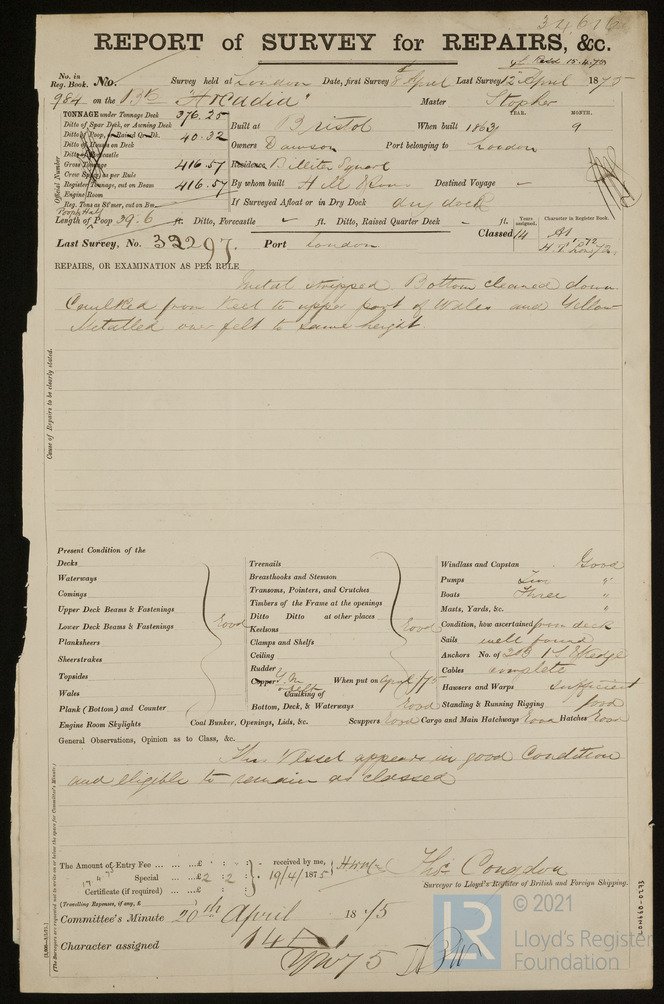 34616
REPORT of SURVEY for REPAIRS, &c.
No. in Reg. Book. No. Survey held at London Date, first Survey 8th April Last Survey 12th April 1875
984 on the "Arcadia" Master Stopher
TONNAGE under Tonnage Deck 376.25
Ditto of Spar Deck, or Awning Deck
Ditto of Poop, or Raised Qr. Dk. 40.32
Ditto of Houses on Deck
Ditto of Forecastle
Gross Tonnage 416.57
Crew Space, as per Rule
Register Tonnage, cut on Beam 416.57
Engine Room
Reg. Tons as St'mer, cut on Bm
Official Number
YEAR. MONTH.
Built at Bristol When built 1863 9
Owners Dawson Port belonging to London
Residence Billiter Square
By whom built Hill & Sons Destined Voyage "
If Surveyed Afloat or in Dry Dock dry dock
Length of Poop 39.6 ft. Ditto, Forecastle " ft. Ditto, Raised Quarter Deck " ft.
Years assigned. Character in Register Book.
Classed 14 A1
Last Survey, No. 32297. Port London
REPAIRS, OR EXAMINATION AS PER RULE
Metal stripped, Bottom cleaned down
Caulked from Keel to upper part of Wales and Yellow
Metalled over felt to same height.
Cause of Repairs to be clearly stated.
Present Condition of the
Decks
Waterways
Comings
Upper Deck Beams & Fastenings
Lower Deck Beams & Fastenings Good
Planksheers
Sheerstrakes
Topsides
Wales
Plank (Bottom) and Counter
Engine Room Skylights
Treenails
Breasthooks and Stemson
Transoms, Pointers, and Crutches
Timbers of the Frame at the openings
Ditto Ditto at other places
Keelsons Good
Clamps and Shelfs
Ceiling
Rudder
Copper Y.M. on felt When put on April /75
Caulking of
Bottom, Deck, & Waterways Good
Coal Bunker, Openings, Lids, &c. Scuppers Good
Windlass and Capstan Good
Pumps Two "
Boats Three "
Masts, Yards, &c. "
Condition, how ascertained from deck
Sails well found
Anchors No. of
Cables complete
Hausers and Warps sufficient
Standing & Running Rigging good
Cargo and Main Hatchways Good Hatches Good
General Observations, Opinion as to Class, &c.
This Vessel appears in good Condition
and eligible to remain as classed
The Amount of Entry Fee £ : : received by me,
Special £ 2 : 2 : 19/4/1875
Certificate (if required) £
(Travelling Expenses, if any, £ )
Thos. Congdon
Surveyor to Lloyd's Register of British and Foreign Shipping.
Committee's Minute 20th April 1875
Character assigned
LON660-0273
© 2021
LR
Lloyd's Register
Foundation